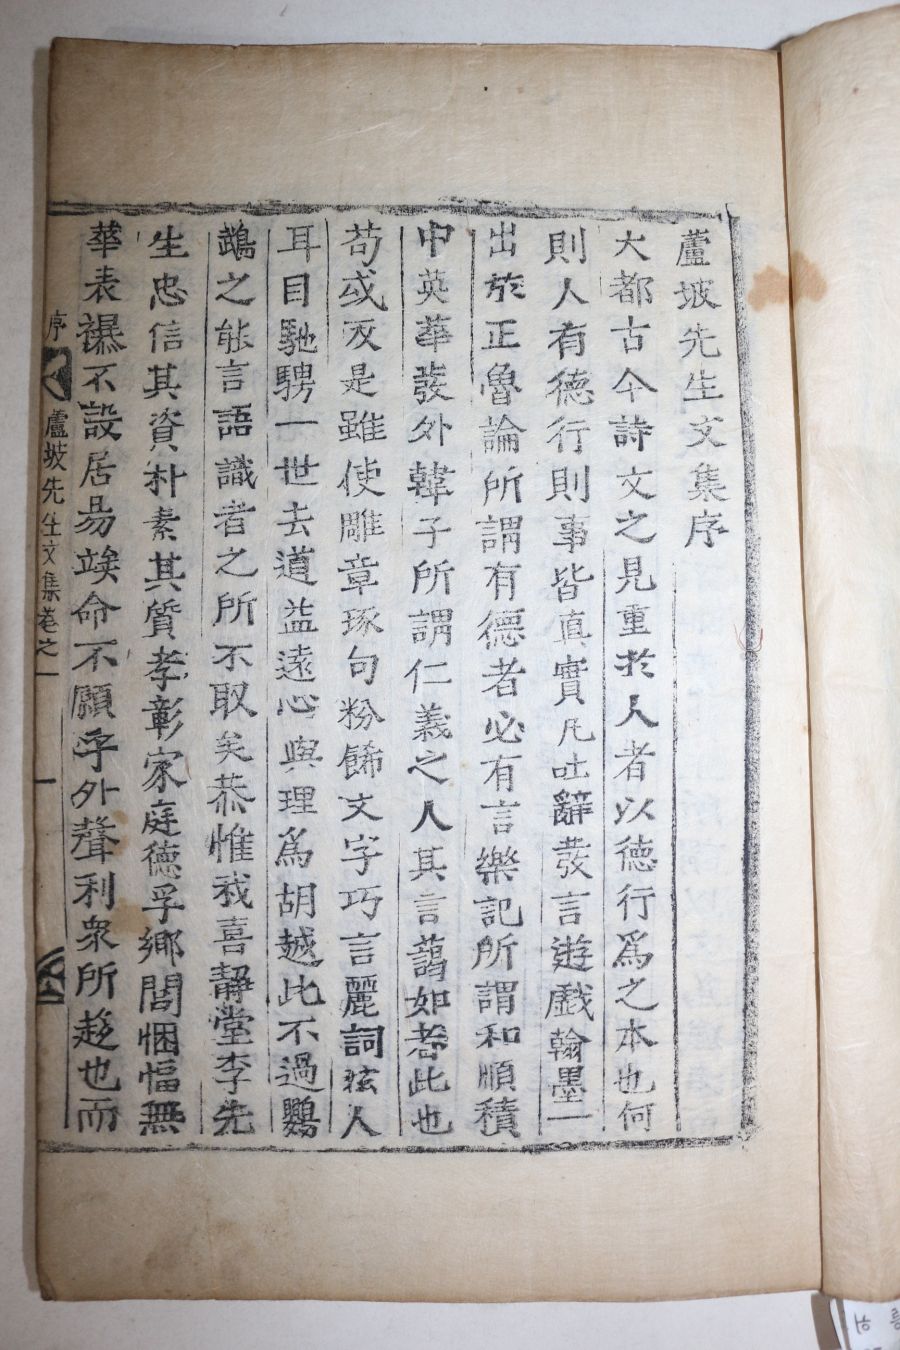 蘆坡先生文集序
大都古今詩文之見重於人者以德行爲之本也何
則人有德行則事皆眞實凡吐辭發言遊戲翰墨一
出於正魯論所謂有德者必有言樂記所謂和順積
中英華發外韓子所謂仁義之人其言藹如者此也
苟或反是雖使雕章琢句粉餙文字巧言麗詞炫人
耳目馳騁一世去道益遠心與理爲胡越此不過鸚
鵡之能言語識者之所不取矣恭惟我喜靜堂李先
生忠信其資朴素其質孝彰家庭德孚鄉閭悃愊無
華表襮不設居昜竢命不願乎外聲利衆所趍也而
序
蘆坡先生文集卷之一
一